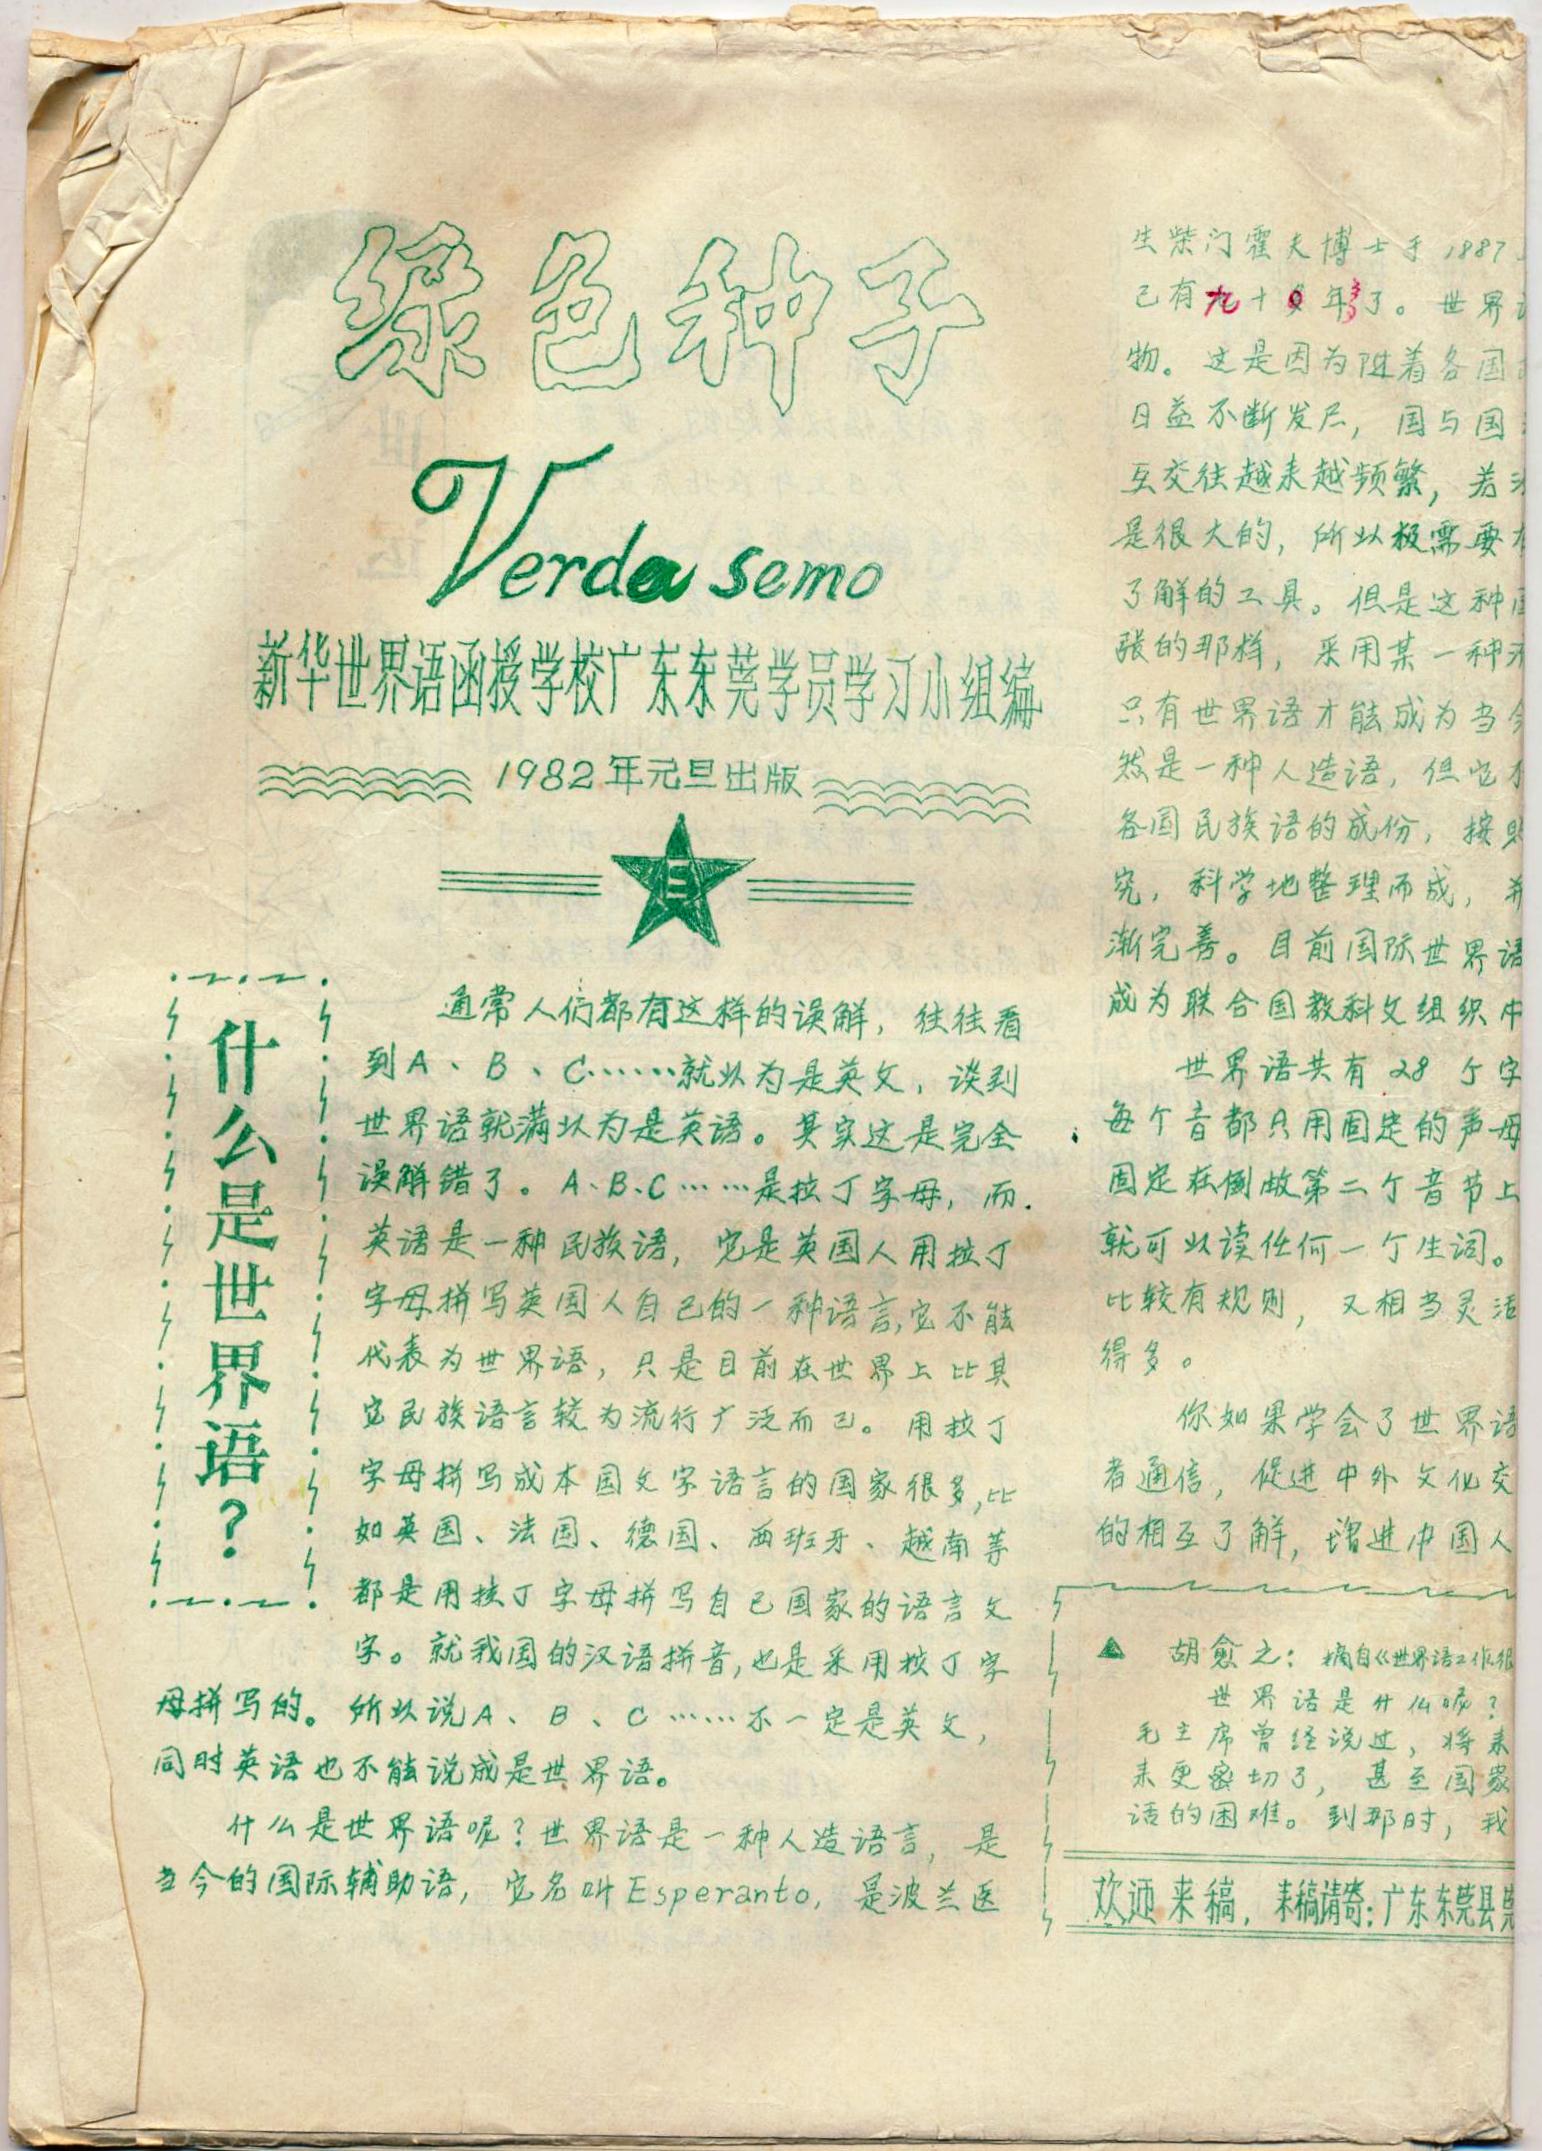 绿色种子
Verda semo
新华世界语函授学校广东东莞学员学习小组编
1982年元旦出版
E
什么是世界语?
通常人们都有这样的误解，往往看
到A、B、C……就以为是英文，谈到
世界语就满以为是英语。其实这是完全
误解错了。A、B、C……是拉丁字母，而
英语是一种民族语，它是英国人用拉丁
字母拼写英国人自己的一种语言，它不能
代表为世界语，只是目前在世界上比其
它民族语言较为流行广泛而已。用拉丁
字母拼写成本国文字语言的国家很多，比
如英国、法国、德国、西班牙、越南等
都是用拉丁字母拼写自己国家的语言文
字。就我国的汉语拼音，也是采用拉丁字
母拼写的。所以说A、B、C……不一定是英文，
同时英语也不能说成是世界语。
什么是世界语呢?世界语是一种人造语言，是
当今的国际辅助语，它名叫Esperanto，是波兰医
生柴门霍夫博士于1887
已有九十年了。世界
物。这是因为随着各国
日益不断发展，国与国
互交往越来越频繁，若
是很大的，所以极需要
了解的工具。但是这种
张的那样，采用某一种
只有世界语才能成为当今
然是一种人造语，但它
各国民族语的成份，按
究，科学地整理而成，并
渐完善。目前国际世界语
成为联合国教科文组织中
世界语共有28个字
每个音都只用固定的声母
固定在倒数第二个音节上
就可以读任何一个生词。
比较有规则，又相当灵活
得多。
你如果学会了世界语
者通信，促进中外文化交
的相互了解，增进中国人
胡愈之：摘自《世界语工作很
世界语是什么呢?
毛主席曾经说过，将来
来更密切了，甚至国家
话的困难。到那时，我
欢迎来稿，来稿请寄：广东东莞县莞